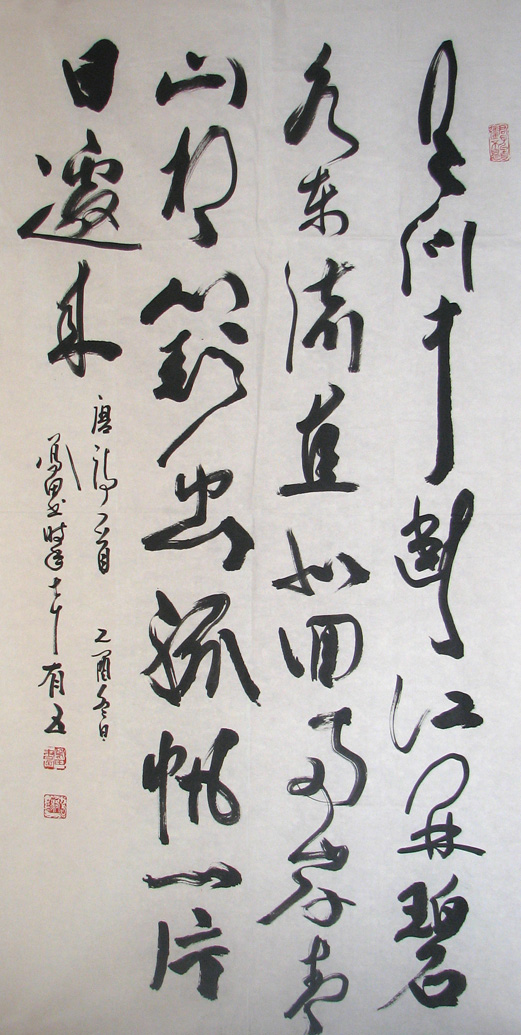 門中斷江開碧
水東流直北回兩岸青
山相對出孤帆一片
日邊来
唐詩一首 乙酉冬日
鳳田书時年七十有五